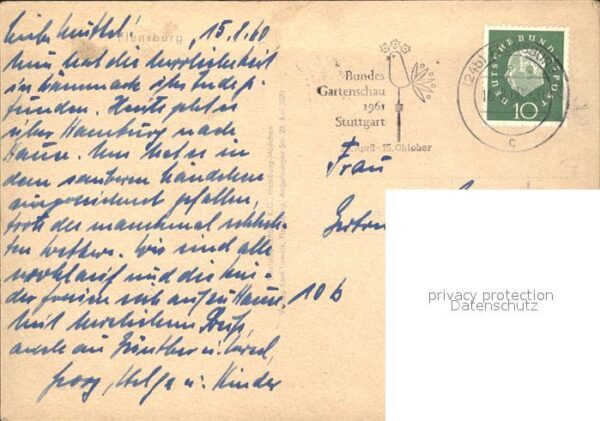 Liebe Mutter! 15.8.60
Flensburg
Nun hat die Herrlichkeit
in Dänemark ihr Ende ge-
funden. Heute geht es
über Hamburg nach
Hause. Uns hat es in
dem sauberen Ländchen
ausgezeichnet gefallen,
trotz des manchmal schlech-
ten Wetters. Wir sind alle
wohlauf und die Kin-
der freuen sich auf zu Hause
Mit herzlichem Gruß,
auch an Günther u.
Georg, Helga u. Kinder
Bundes
Gartenschau
1961
Stuttgart
April - 15. Oktober
(24b)
c
DEUTSCHE BUNDESPOST
10
Frau
10 b
privacy protection
Datenschutz